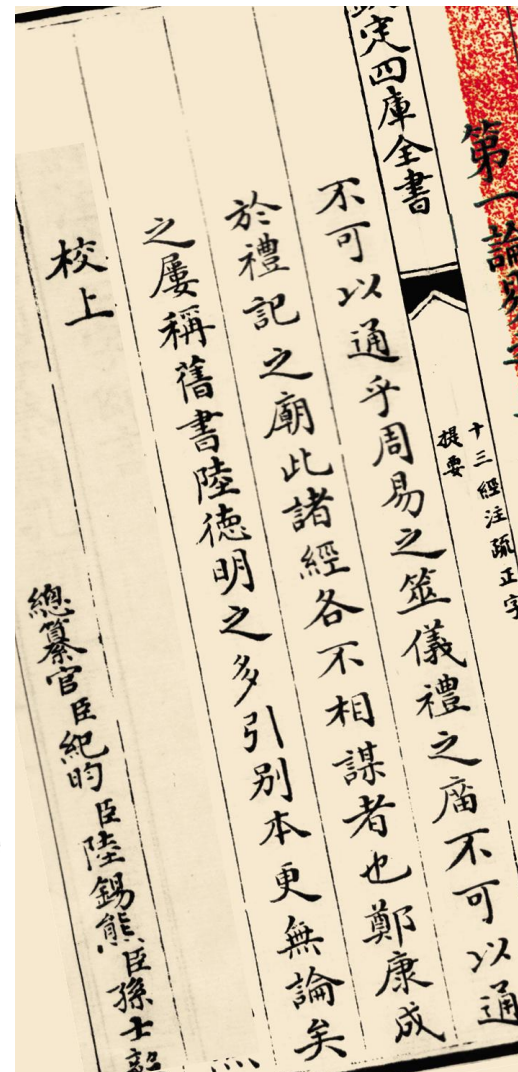 第一論易
定四庫全書
十三經注疏正字
提要
不可以通乎周易之筮儀禮之庿不可以通
於禮記之廟此諸經各不相謀者也鄭康成
之屢稱舊書陸德明之多引别本更無論矣
校上
總纂官臣紀昀臣陸錫熊臣孫士